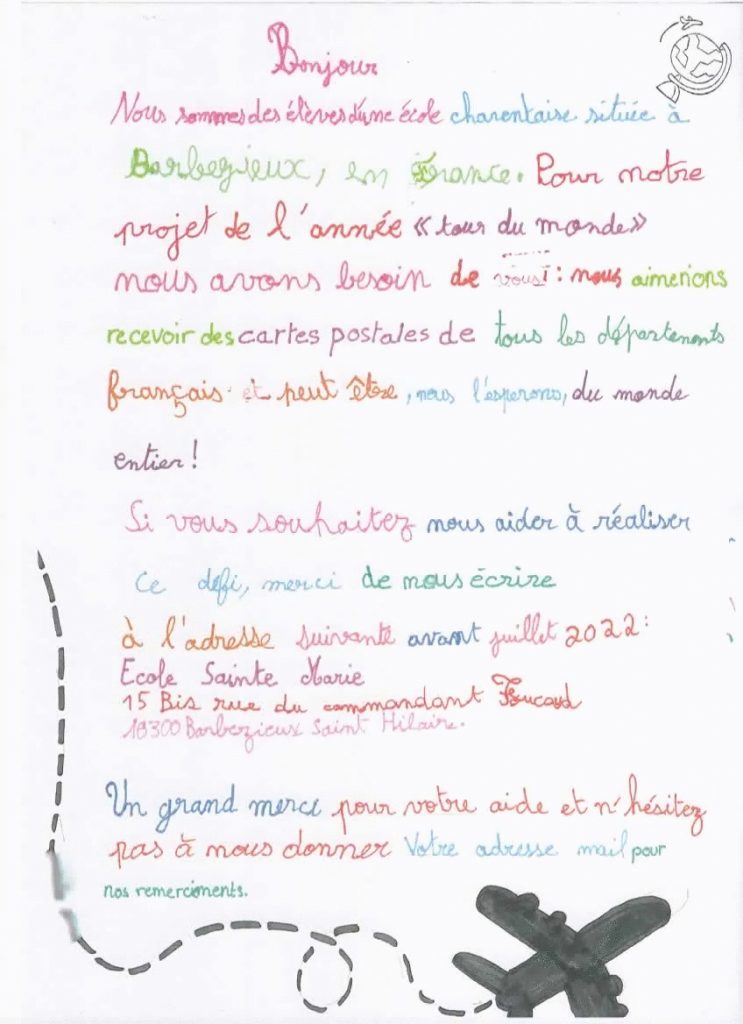 Bonjour
Nous sommes des élèves d'une école charentaise située à
Barbezieux, en France. Pour notre
projet de l'année « tour du monde »
nous avons besoin de vous : nous aimerions
recevoir des cartes postales de tous les départements
français et peut être, nous l'esperons, du monde
entier !
Si vous souhaitez nous aider à réaliser
ce défi, merci de nous écrire
à l'adresse suivante avant juillet 2022 :
Ecole Sainte Marie
15 Bis rue du commandant Foucaud
16300 Barbezieux Saint Hilaire.
Un grand merci pour votre aide et n'hésitez
pas à nous donner votre adresse mail pour
nos remerciments.